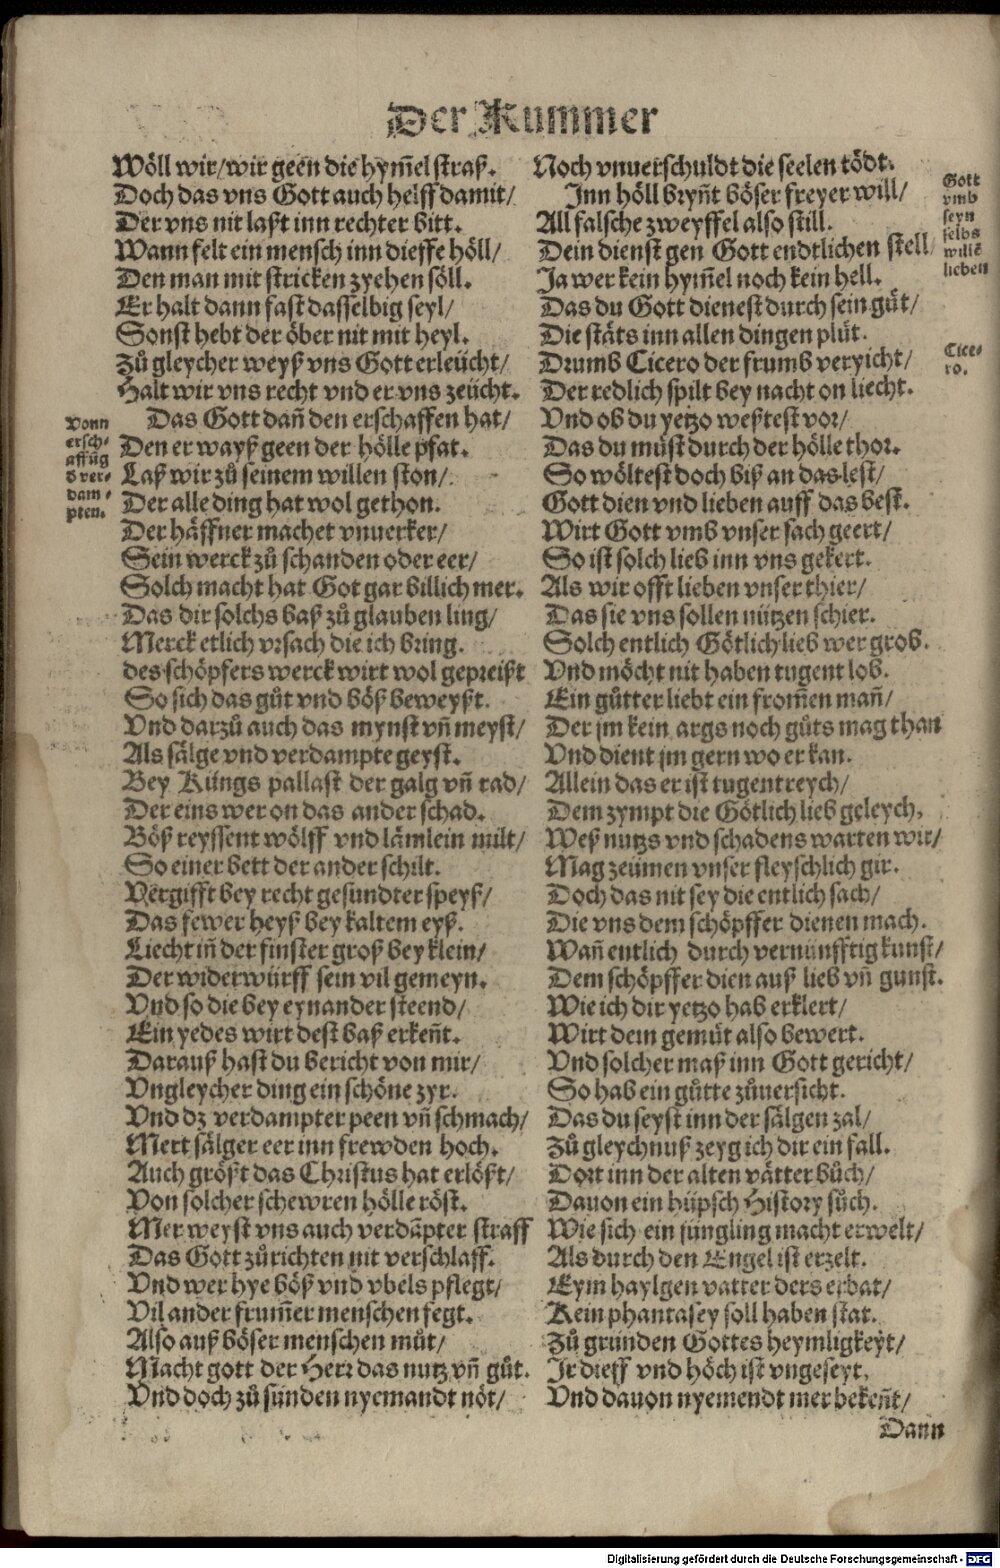 Der Kummer
Wöll wir/wir geen die hym̃el straß.
Doch das vns Gott auch helff damit/
Der vns nit laßt inn rechter bitt.
Wann felt ein mensch inn dieffe höll/
Den man mit stricken zyehen söll.
Er halt dann fast dasselbig seyl/
Sonst hebt der öber nit mit heyl.
Zů gleycher weyß vns Gott erleücht/
Halt wir vns recht vnd er vns zeücht.
Das Gott dañ den erschaffen hat/
Den er wayß geen der hölle pfat.
Laß wir zů seinem willen ston/
Der alle ding hat wol gethon.
Der häffner machet vnuerker/
Sein werck zů schanden oder eer/
Solch macht hat Got gar billich mer.
Das dir solchs baß zů glauben ling/
Merck etlich vrsach die ich bring.
des schöpfers werck wirt wol gepreißt
So sich das gůt vnd böß beweyßt.
Vnd darzů auch das mynst vñ meyst/
Als sälge vnd verdampte geyst.
Bey Küngs pallast der galg vñ rad/
Der eins wer on das ander schad.
Böß reyssent wölff vnd lämlein milt/
So einer bett der ander schilt.
Vergifft bey recht gesundter speyß/
Das fewer heyß bey kaltem eyß.
Liecht iñ der finster groß bey klein/
Der widerwürff sein vil gemeyn.
Vnd so die bey eynander steend/
Ein yedes wirt dest baß erkeñt.
Darauß hast du bericht von mir/
Vngleycher ding ein schöne zyr.
Vnd dz verdampter peen vñ schmach/
Mert sälger eer inn frewden hoch.
Auch größt das Christus hat erlößt/
Von solcher schewren hölle röst.
Mer weyst vns auch verdãpter straff
Das Gott zůrichten nit verschlaff.
Vnd wer hye böß vnd vbels pflegt/
Vil ander frum̃er menschen fegt.
Also auß böser menschen můt/
Macht gott der Herr das nutz vñ gůt.
Vnd doch zů sünden nyemandt nöt/
Vonn
ersch-
affũg
d ver-
dam-
pten.
Noch vnuerschuldt die seelen tödt.
Inn höll bryñt böser freyer will/
All falsche zweyffel also still.
Dein dienst gen Gott endtlichen stell/
Ja wer kein hym̃el noch kein hell.
Das du Gott dienest durch sein güt/
Die stäts inn allen dingen plüt.
Drumb Cicero der frumb veryicht/
Der redlich spilt bey nacht on liecht.
Vnd ob du yetzo weßtest vor/
Das du můst durch der hölle thor.
So wöltest doch biß an das lest/
Gott dien vnd lieben auff das best.
Wirt Gott vmb vnser sach geert/
So ist solch lieb inn vns gekert.
Als wir offt lieben vnser thier/
Das sie vns sollen nützen schier.
Solch entlich Götlich lieb wer grob.
Vnd möcht nit haben tugent lob.
Ein gůtter liebt ein from̃en mañ/
Der jm kein args noch gůts mag than
Vnd dient jm gern wo er kan.
Allein das er ist tugentreych/
Dem zympt die Götlich lieb geleych,
Weß nutzs vnd schadens warten wir/
Mag zeümen vnser fleyschlich gir.
Doch das nit sey die entlich sach/
Die vns dem schöpffer dienen mach.
Wañ entlich durch vernünfftig kunst/
Dem schöpffer dien auß lieb vñ gunst.
Wie ich dir yetzo hab erklert/
Wirt dein gemüt also bewert.
Vnd solcher maß inn Gott gericht/
So hab ein gůtte zůuersicht.
Das du seyst inn der sälgen zal/
Zů gleychnuß zeyg ich dir ein fall.
Dort inn der alten vätter bůch/
Dauon ein hüpsch History sůch.
Wie sich ein jüngling macht erwelt/
Als durch den Engel ist erzelt.
Eym haylgen vatter ders erbat/
Kein phantasey soll haben stat.
Zů gründen Gottes heymligkeyt/
Jr dieff vnd höch ist vngeseyt,
Vnd dauon nyemendt mer bekeñt/
Gott
vmb
seyn
selbs
willẽ
lieben
Cice-
ro.
Dann
Digitalisierung gefördert durch die Deutsche Forschungsgemeinschaft - DFG